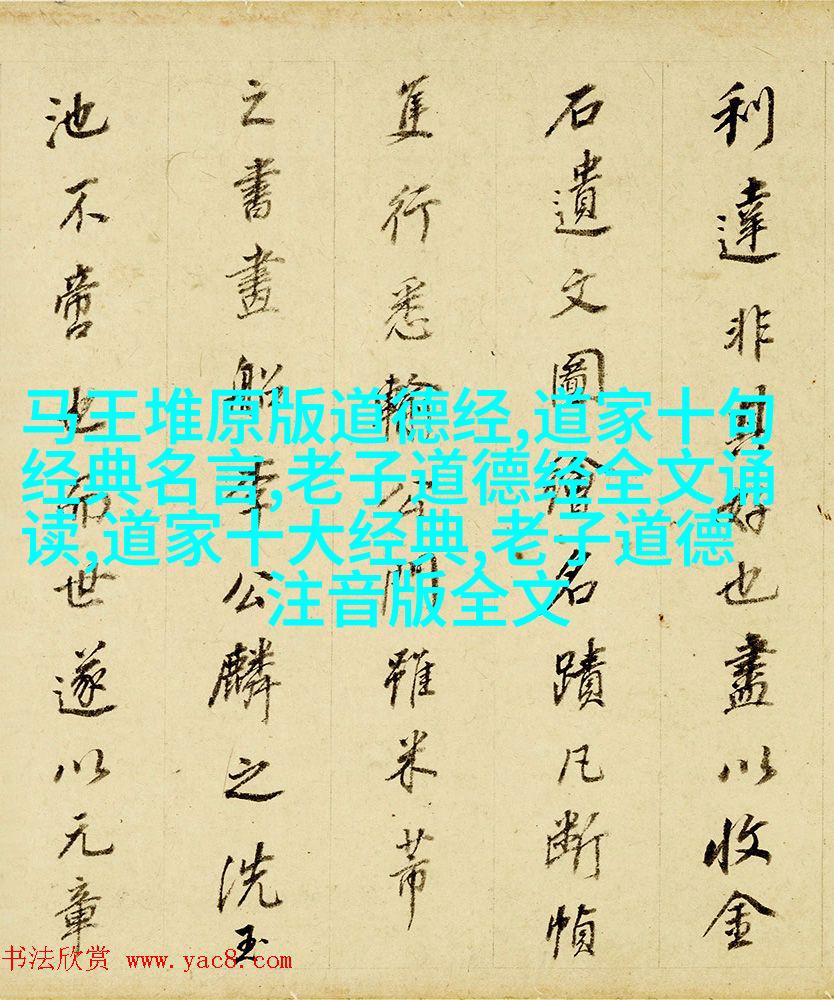 利達非其好也盡以收金
石遺文圖繪名蹟凡斷幀
隻行悉輸公門雖米芾
之書畫船李公麟之洗玉
池不啻也而世遂以元章
马王堆原版道德经,道家十句
经典名言,老子道德经全文诵
读,道家十大经典,老子道德
注音版全文
书法欣赏 www.yac8.com